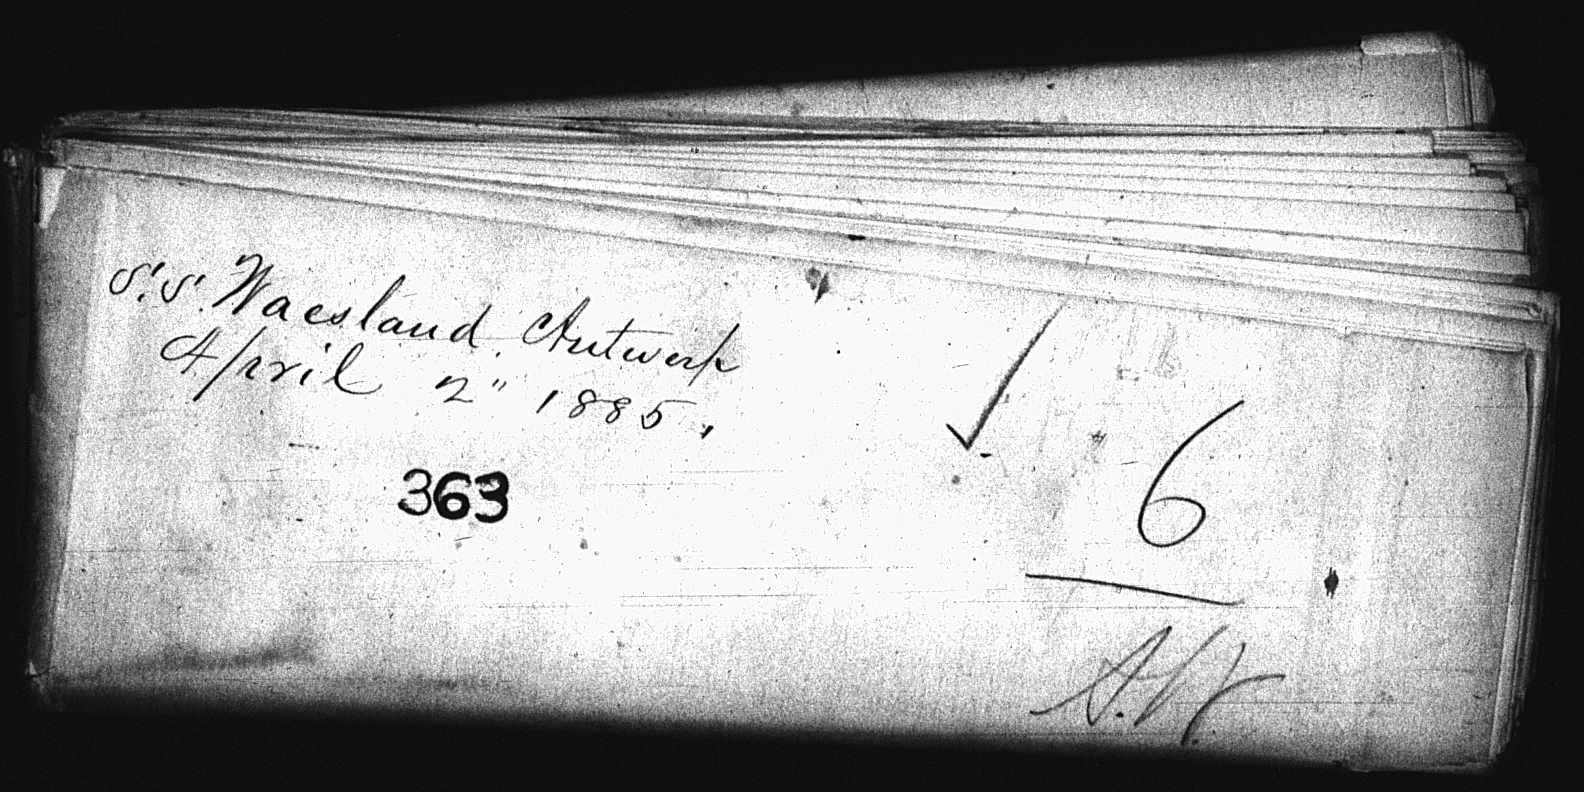 S.S. Waesland. Antwerp
April 2" 1885.
363
6